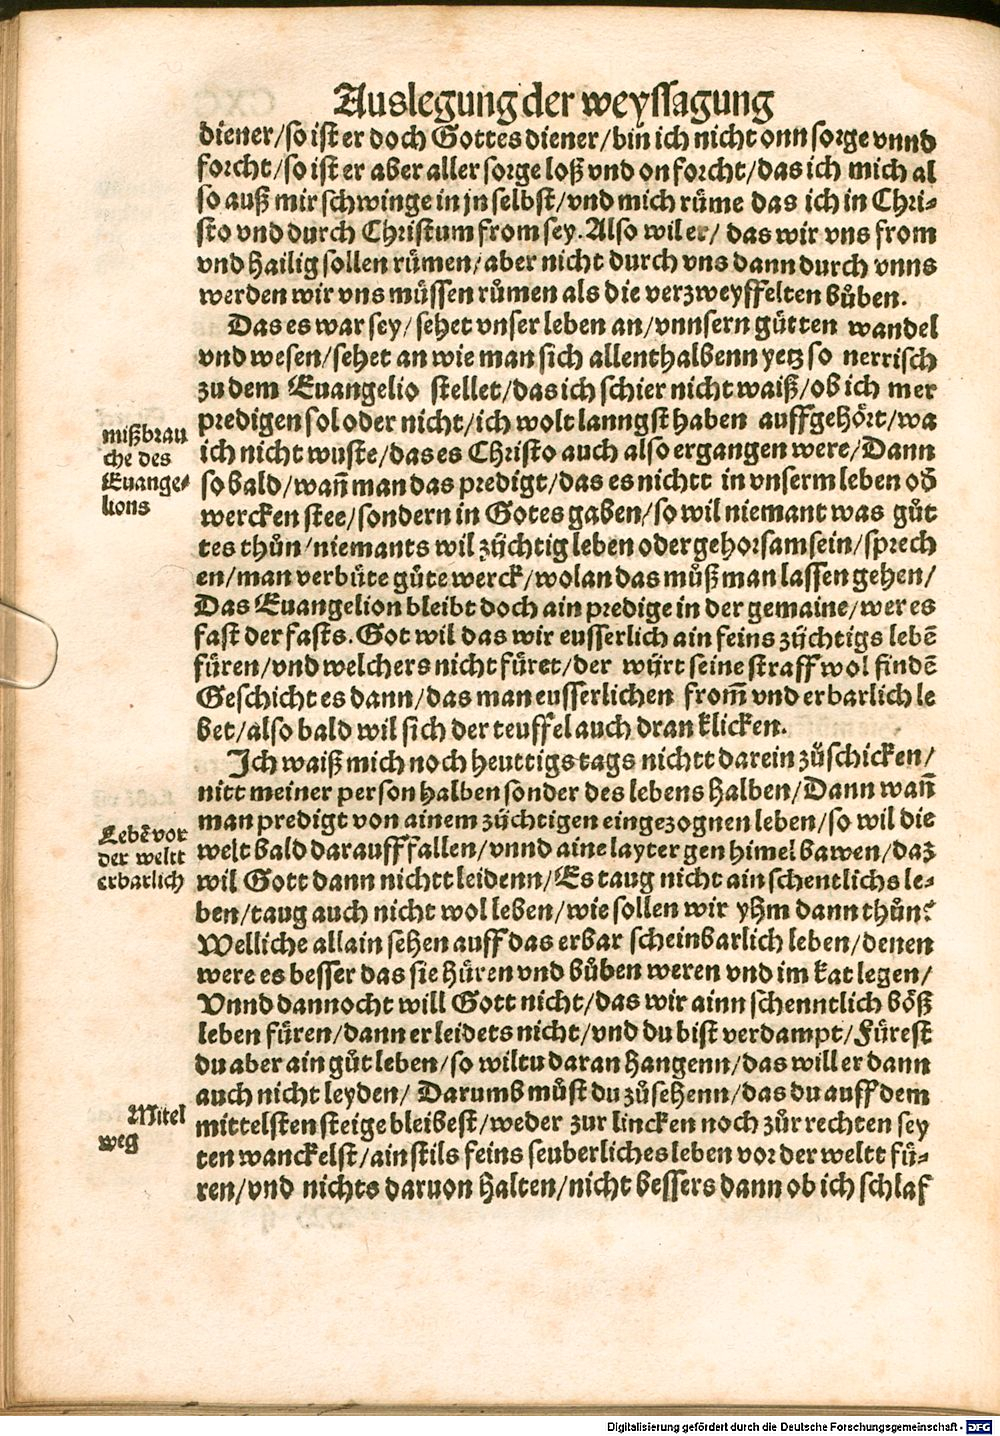 Auslegung der weyssagung
diener/so ist er doch Gottes diener/bin ich nicht onn sorge vnnd
forcht/so ist er aber aller sorge loß vnd on forcht/das ich mich al
so auß mir schwinge in jn selbst/vnd mich rüme das ich in Chri-
sto vnd durch Christum from sey. Also wil er/ das wir vns from
vnd hailig sollen rümen/aber nicht durch vns dann durch vnns
werden wir vns müssen růmen als die verzweyffelten bůben.
Das es war sey/sehet vnser leben an/vnnsern gůtten wandel
vnd wesen/sehet an wie man sich allenthalbenn yetz so nerrisch
zu dem Euangelio stellet/das ich schier nicht waiß/ob ich mer
predigen sol oder nicht/ich wolt lanngst haben auffgehört/wa
ich nicht wuste/das es Christo auch also ergangen were/Dann
so bald/wañ man das predigt/das es nichtt in vnserm leben oď
wercken stee/sondern in Gotes gaben/so wil niemant was gůt
tes thůn/niemants wil züchtig leben oder gehorsam sein/sprech
en/man verbüte gůte werck/wolan das můß man lassen gehen/
Das Euangelion bleibt doch ain predige in der gemaine/wer es
fast der fasts. Got wil das wir eusserlich ain feins züchtigs lebē
füren/vnd welchers nicht füret/der würt seine straff wol findē
Geschicht es dann/das man eusserlichen from̄ vnd erbarlich le
bet/also bald wil sich der teuffel auch dran klicken.
Ich waiß mich noch heuttigs tags nichtt darein zůschicken/
nitt meiner person halben sonder des lebens halben/Dann wañ
man predigt von ainem züchtigen eingezognen leben/so wil die
welt bald darauff fallen/vnnd aine layter gen himel bawen/daz
wil Gott dann nichtt leidenn/Es taug nicht ain schentlichs le-
ben/taug auch nicht wol leben/wie sollen wir yhm dann thůn?
Welliche allain sehen auff das erbar scheinbarlich leben/denen
were es besser das sie hůren vnd bůben weren vnd im kat legen/
Vnnd dannocht will Gott nicht/das wir ainn schenntlich böß
leben füren/dann er leidets nicht/vnd du bist verdampt/Fürest
du aber ain gůt leben/so wiltu daran hangenn/das will er dann
auch nicht leyden/ Darumb můst du zůsehenn/das du auff dem
mittelsten steige bleibest/weder zur lincken noch zůr rechten sey
ten wanckelst/ain stils feins seuberliches leben vor der weltt fü-
ren/vnd nichts daruon halten/nicht bessers dann ob ich schlaf
mißbrau
che des
Euange-
lions
Lebē vor
der weltt
erbarlich
Mitel
weg
Digitalisierung gefördert durch die Deutsche Forschungsgemeinschaft - DFG